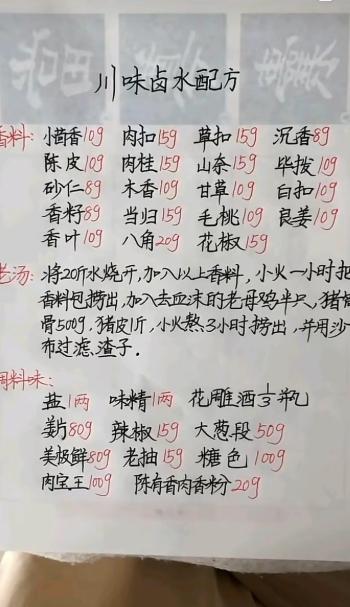 川味卤水配方
香料: 小茴香10g 肉扣15g 草扣15g 沉香8g
陈皮10g 肉桂15g 山奈15g 毕拨10g
砂仁8g 木香10g 甘草10g 白扣10g
香籽8g 当归15g 毛桃10g 良姜10g
香叶10g 八角20g 花椒15g
老汤: 将20斤水烧开,加入以上香料,小火一小时把
香料包捞出,加入去血沫的老母鸡半只,猪
骨500g.猪皮1斤,小火熬3小时捞出,并用沙
布过滤渣子.
调料味:
盐1两 味精1两 花雕酒1/3瓶
姜片80g 辣椒15g 大葱段50g
美极鲜80g 老抽15g 糖色100g
肉宝王100g 陈有香肉香粉20g